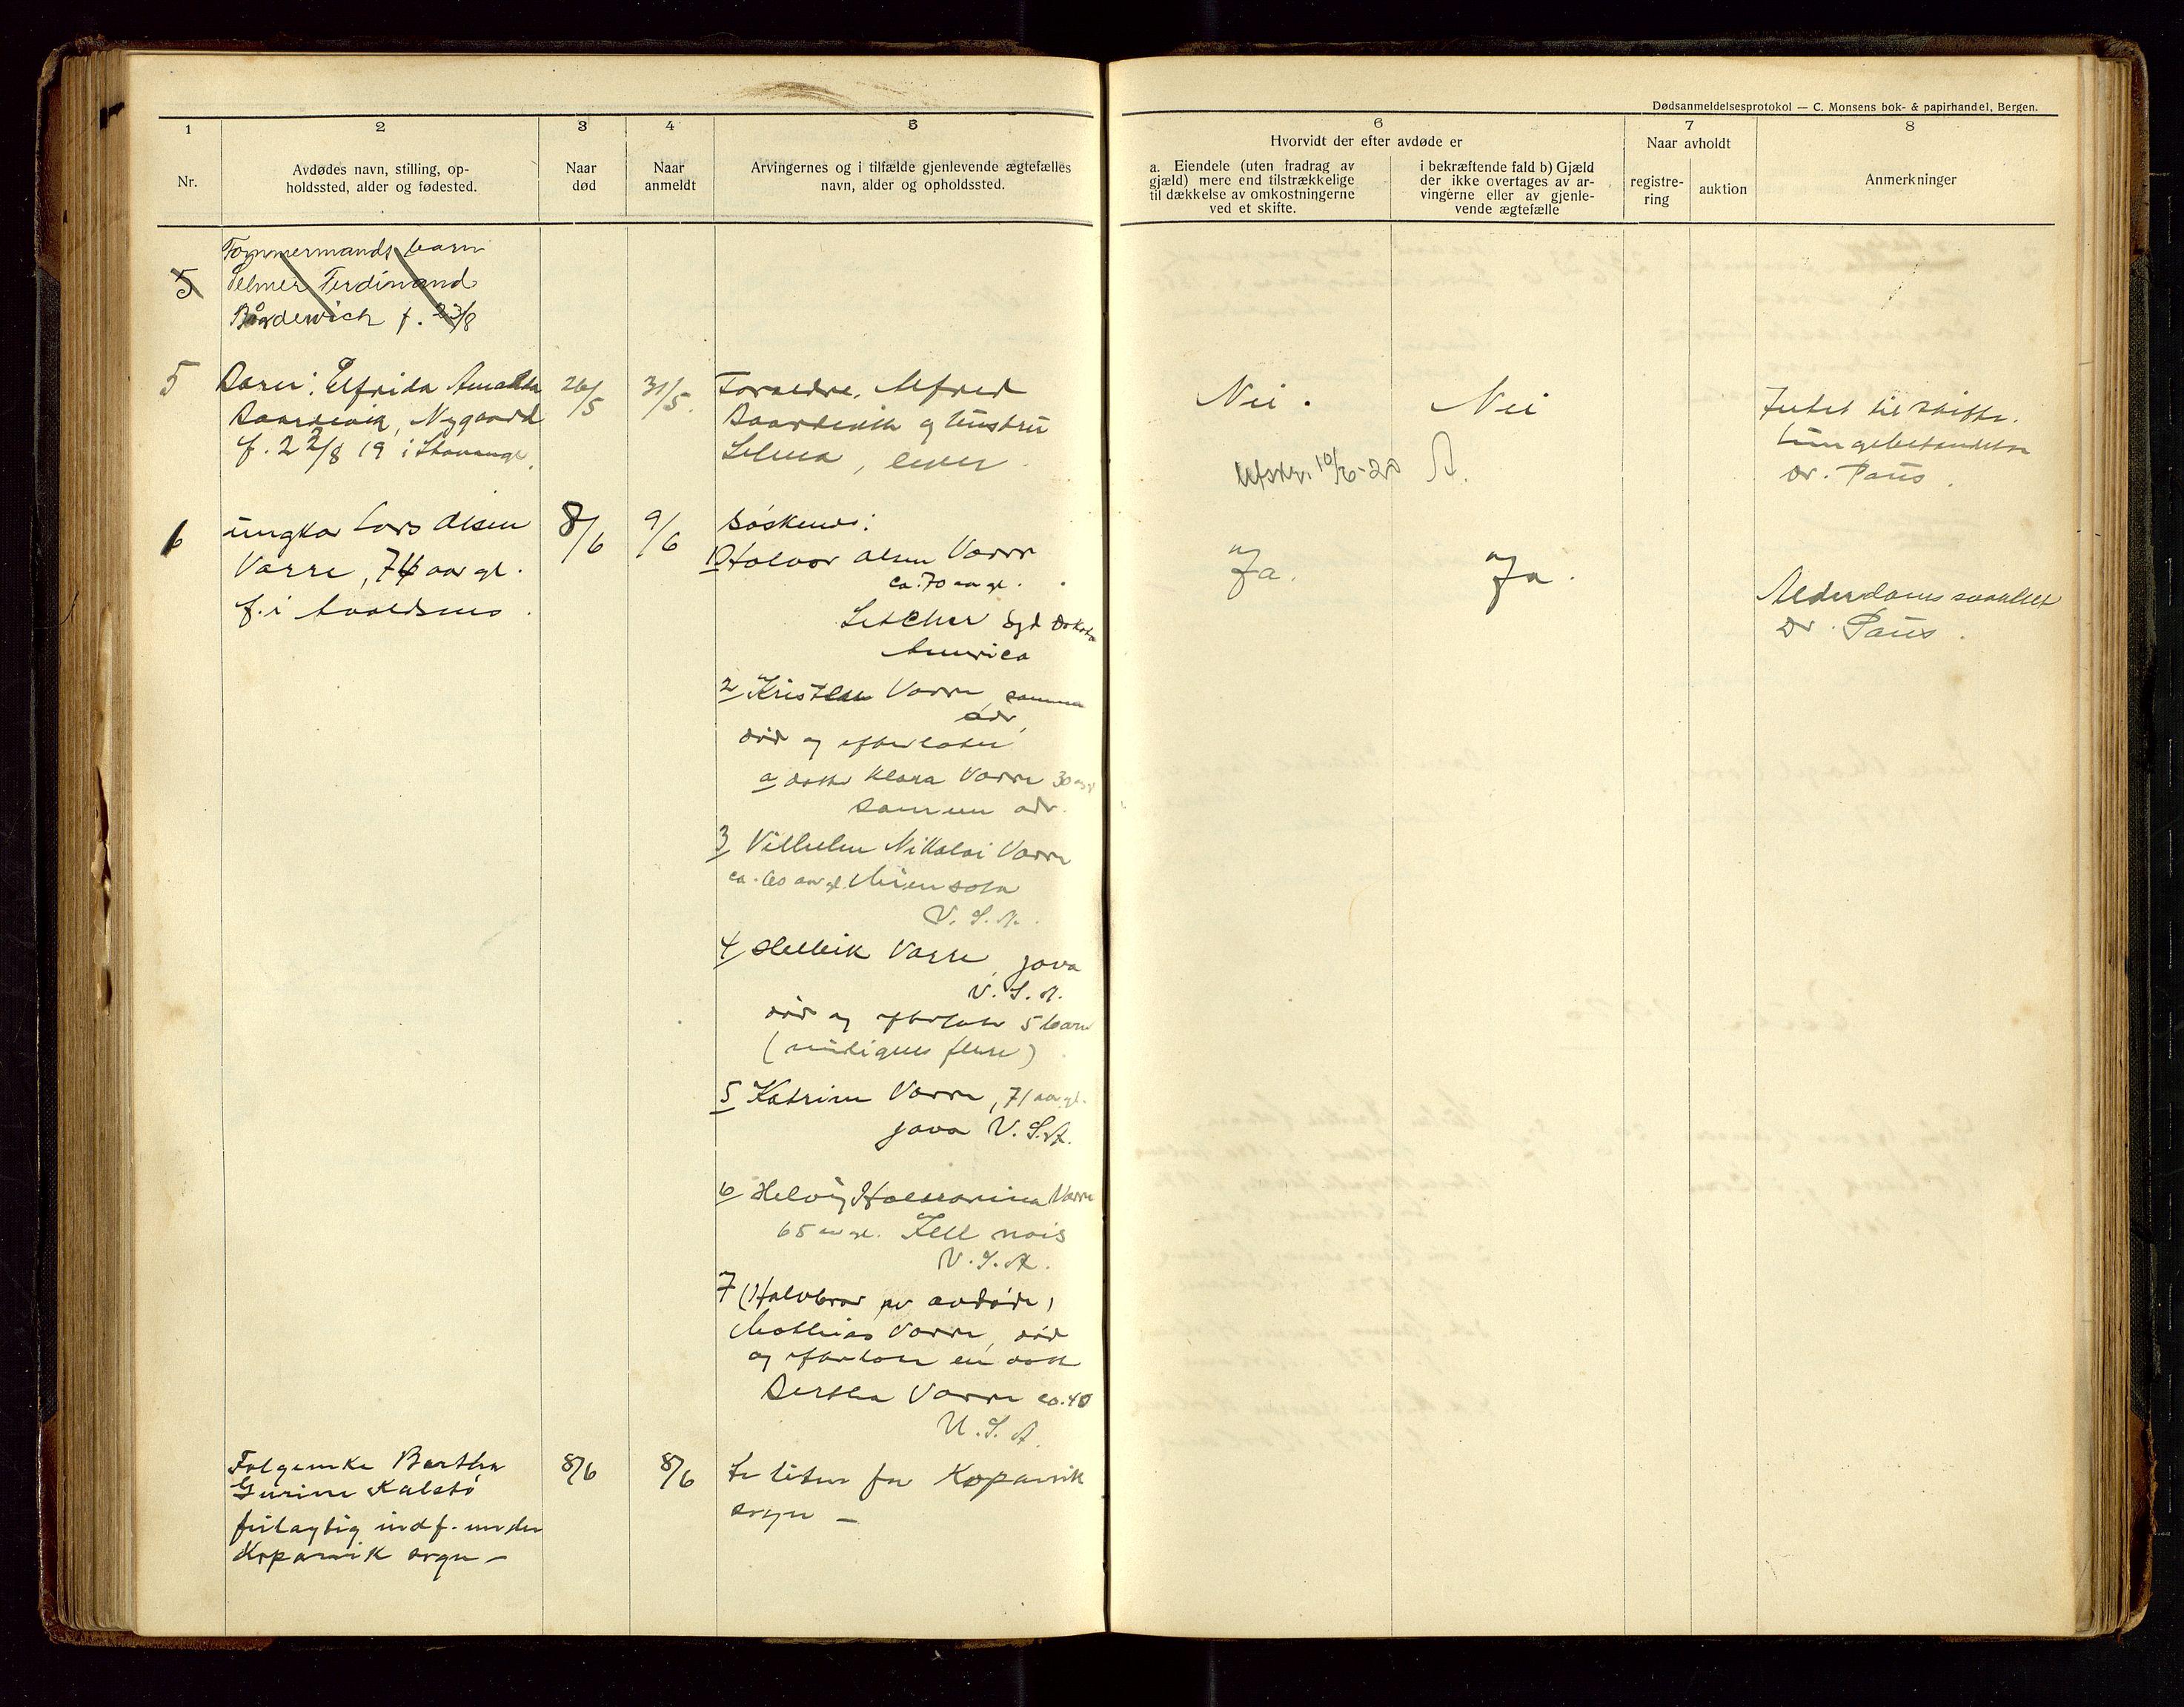 Dødsanmeldelsesprotokol — C. Monsens bok- & papirhandel, Bergen.
1
2
3
4
5
6
7
8
Nr.
Avdødes navn, stilling, op-
holdssted, alder og fødested.
Naar
død
Naar
anmeldt
Arvingernes og i tilfælde gjenlevende ægtefælles
navn, alder og opholdssted.
Hvorvidt der efter avdøde er
a. Eiendele (uten fradrag av
gjæld) mere end tilstrækkelige
til dækkelse av omkostningerne
ved et skifte.
i bekræftende fald b) Gjæld
der ikke overtages av ar-
vingerne eller av gjenle-
vende ægtefælle
Naar avholdt
registre-
ring
auktion
Anmerkninger
5
Tømmermands barn
Selmer Ferdinand
Bårdewich f. 23/8
5
Barn: Elfrida Amalda
Baardevik, Nygaard
f. 22/8 19 i Stavanger
26/5
31/5.
Forældre, Alfred
Baardevik og hustru
Selma, lever
Nei.
Nei
Utskr. 10/6-20
Intet til skifte.
Lungebetændelse
Dr. Paus.
6
ungkar Lars Olsen
Varre, 74 aar gl.
f. i Avaldsnes.
8/6
9/6
Søskende:
1 Halvor Olsen Varre
ca. 70 aar gl.
Letcher Syd Dakota
America
Ja.
Ja.
Alderdomssvakhet
Dr. Paus.
2 Kristen Varre, samme
adr,
død og efterlater
a datter Klara Varre 30 aar gl
samme adr.
3 Vilhelm Nikolai Varre
ca. 60 aar gl. Minesota
U. S. A.
4 Helleik Varre, Jova
U. S. A.
død og efterlater 5 barn
(muligens flere)
5 Katrine Varre, 71 aar gl.
Jova U. S. A.
6 Helvig Varre
65 aar gl. Ille nois
U. S. A.
7 (Halvbror av avdøde)
Mathias Varre, død
og efterlater en datter
Bertha Varre ca. 40
U. S. A.
Folgeenke Bertha
Gurine Kalstø
feilagtig indf. under
Kopervik sogn —
8/6
8/6
Se listen for Kopervik
sogn —